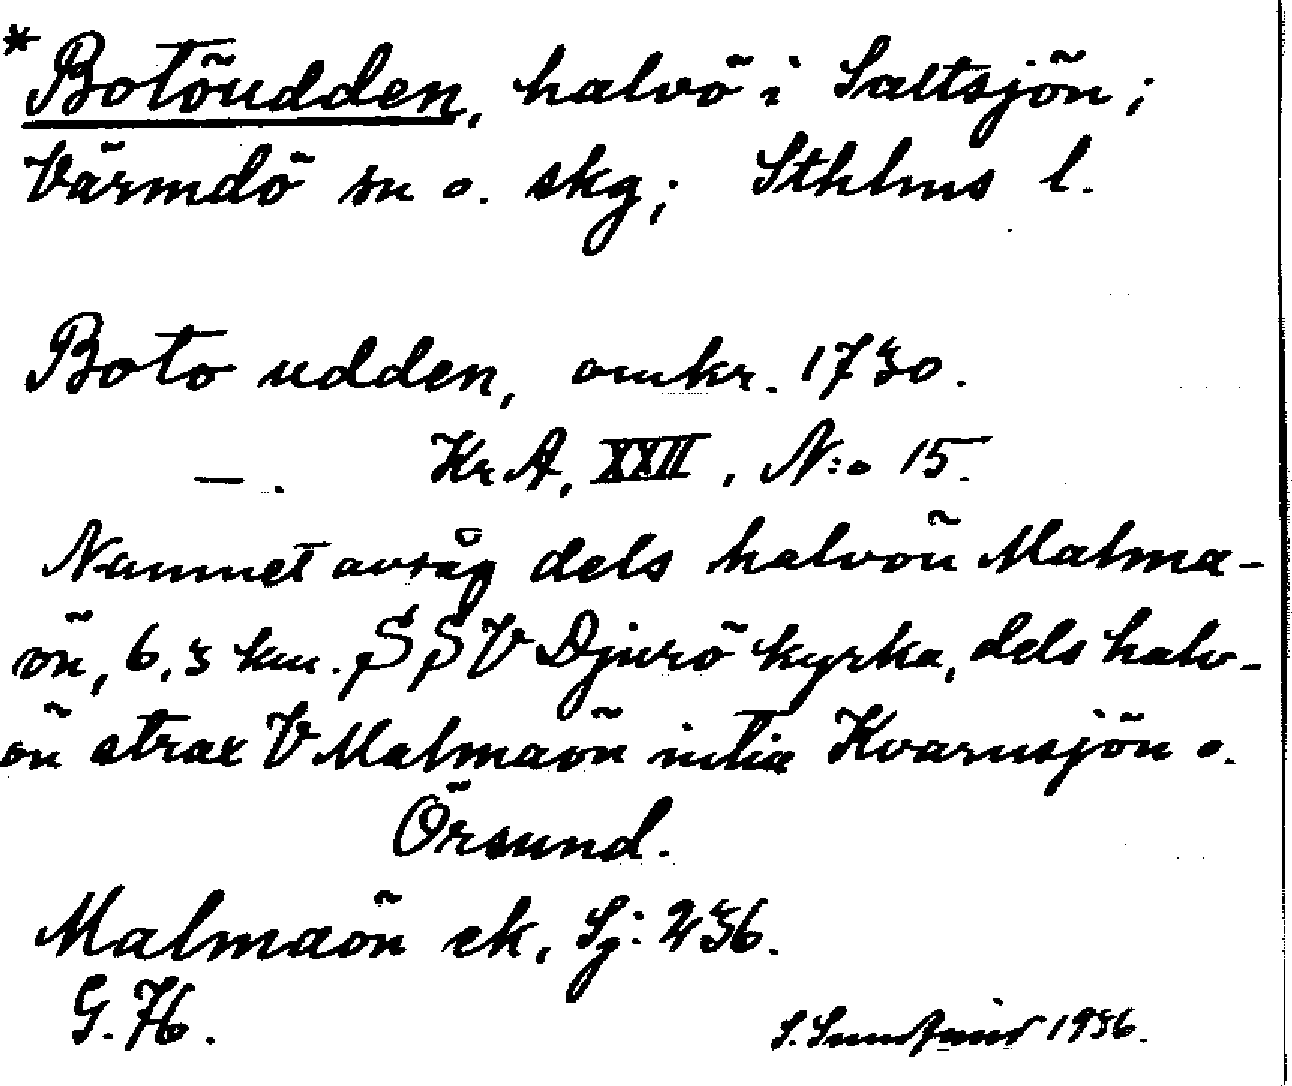 *Botöudden, halvö i Saltsjön;
Värmdö sn o. skg; Sthlms l.
Boto udden, omkr. 1730.
—. Kr A, XXII, N:o 15.
Namnet avsåg dels halvön Malma-
ön, 6,3 km. SSV Djurö kyrka, dels halv-
ön strax V Malmaön intia Kvarnsjön o.
Örsund.
Malmaön ek, Sj: 236.
G. H.
S. 1936.